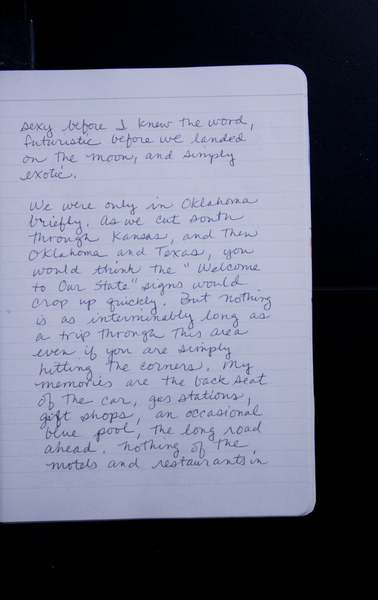 sexy before I knew the word,
futuristic before we landed
on the moon, and simply
exotic.
We were only in Oklahoma
briefly. As we cut south
through Kansas, and then
Oklahoma and Texas, you
would think the "Welcome
to Our State" signs would
crop up quickly. But nothing
is as interminably long as
a trip through this area
even if you are simply
hitting the corners. My
memories are the back seat
of the car, gas stations,
gift shops, an occasional
blue pool, the long road
ahead. Nothing of the
motels and restaurants in